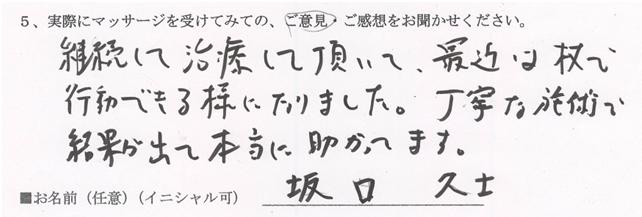 5、実際にマッサージを受けてみての、ご意見・ご感想をお聞かせください。
継続して治療して頂いて、最近は杖で
行動できる様になりました。丁寧な施術で
結果が出て本当に助かってます。
■お名前（任意）（イニシャル可） 坂口 久士